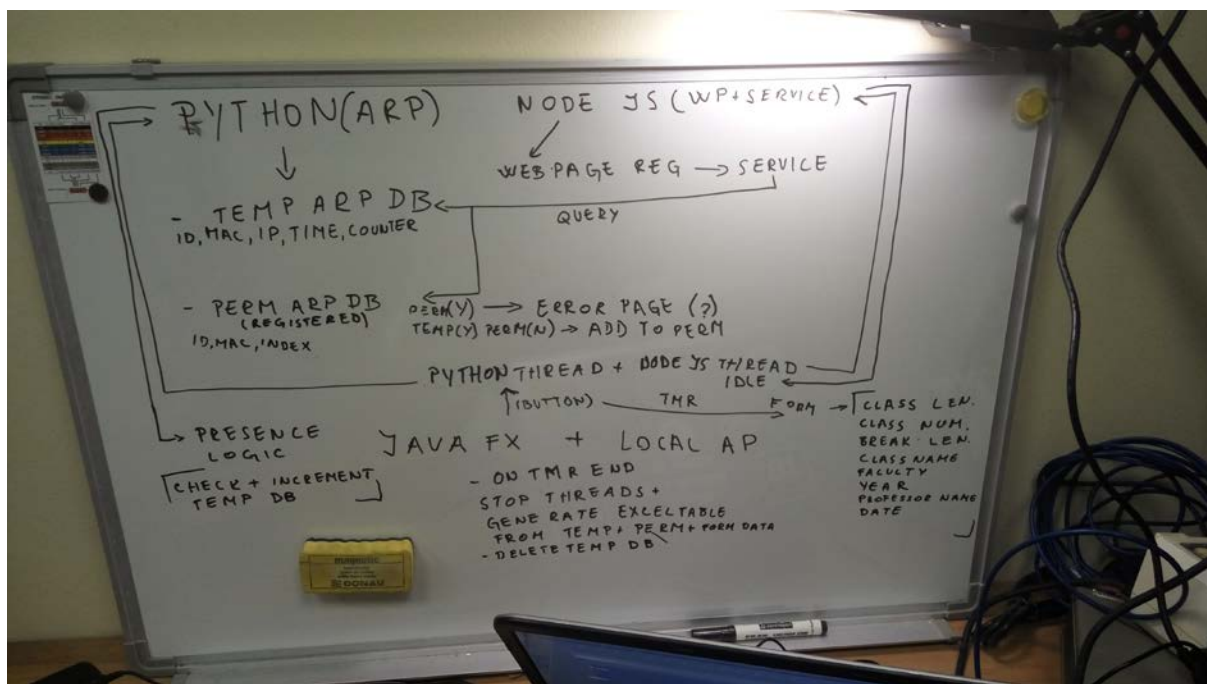 PYTHON(ARP)
NODE JS (WP+SERVICE)
WEB PAGE REG → SERVICE
- TEMP ARP DB
QUERY
ID, MAC, IP, TIME, COUNTER
- PERM ARP DB
(REGISTERED)
ID, MAC, INDEX
PERM(Y) → ERROR PAGE (?)
TEMP(Y) PERM(N) → ADD TO PERM
PYTHON THREAD + NODE JS THREAD
IDLE
(BUTTON)
TMR
FORM →
CLASS LEN.
CLASS NUM.
BREAK LEN.
CLASS NAME
FACULTY
YEAR
PROFESSOR NAME
DATE
PRESENCE
LOGIC
CHECK + INCREMENT
TEMP DB
JAVA FX + LOCAL AP
- ON TMR END
STOP THREADS +
GENERATE EXCEL TABLE
FROM TEMP + PERM + FORM DATA
- DELETE TEMP DB
DONAU